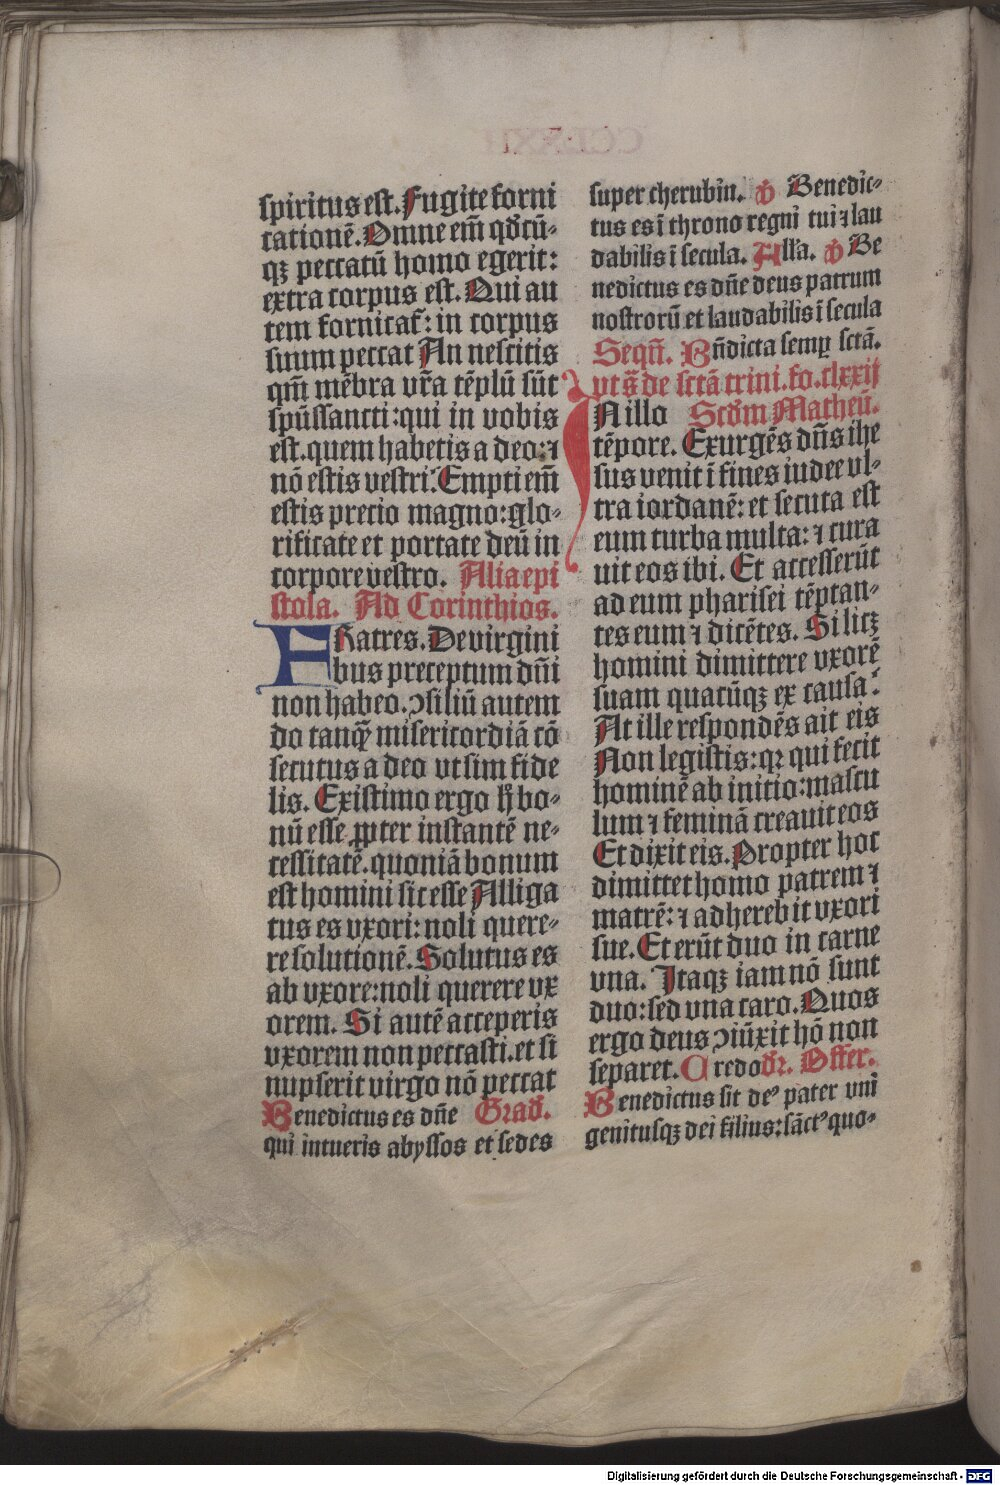 spiritus est. Fugite forni
cationē. Omne em̄ qd̄cū-
qꝫ peccatū homo egerit:
extra corpus est. Qui au
tem fornicat᷑: in corpus
suum peccat An nescitis
qm̄ mēbra vr̄a tēplū sūt
spūssancti: qui in vobis
est. quem habetis a deo: ⁊
nō estis vestri. Empti em̄
estis precio magno: glo-
rificate et portate deū in
corpore vestro. Alia epi
stola. Ad Corinthios.
FRatres. De virgini
bus preceptum dn̄i
non habeo. ꝯsiliū autem
do tanqȝ misericordiā cō
secutus a deo vt sim fide
lis. Existimo ergo hͦ bo-
nū esse ꝓpter instantē ne-
cessitatē. quoniā bonum
est homini sic esse Alliga
tus es vxori: noli quere-
re solutionē. Solutus es
ab vxore: noli querere vx
orem. Si autē acceperis
vxorem non peccasti. et si
nupserit virgo nō peccat
Benedictus es dn̄e Grad̄.
qui intueris abyssos et sedes
super cherubin. ℣ Benedic-
tus es ī throno regni tui ⁊ lau
dabilis ī secula. Alla. ℣ Be
nedictus es dn̄e deus patrum
nostrorū et laudabilis ī secula
Seqn̄. Bn̄dicta semꝑ sctā.
vt s̄ de sctā trini. fo. clxxij
IN illo Scd̄m Matheū.
tēpore. Exurgēs dn̄s ihe
sus venit ī fines iudee vl-
tra iordanē: et secuta est
eum turba multa: ⁊ cura
uit eos ibi. Et accesserūt
ad eum pharisei tēptan-
tes eum ⁊ dicētes. Si licꝫ
homini dimittere vxorē
suam quacūqꝫ ex causa.
At ille respondēs ait eis
Non legistis: qꝛ qui fecit
hominē ab initio: mascu
lum ⁊ feminā creauit eos
Et dixit eis. Propter hoc
dimittet homo patrem ⁊
matrē: ⁊ adherebit vxori
sue. Et erūt duo in carne
vna. Itaqꝫ iam nō sunt
duo: sed vna caro. Quos
ergo deus ꝯiūxit hō non
separet. Credo dr̄. Offer.
Benedictus sit deꝰ pater vni
genitusqꝫ dei filius: sāctꝰ quo-
Digitalisierung gefördert durch die Deutsche Forschungsgemeinschaft - DFG